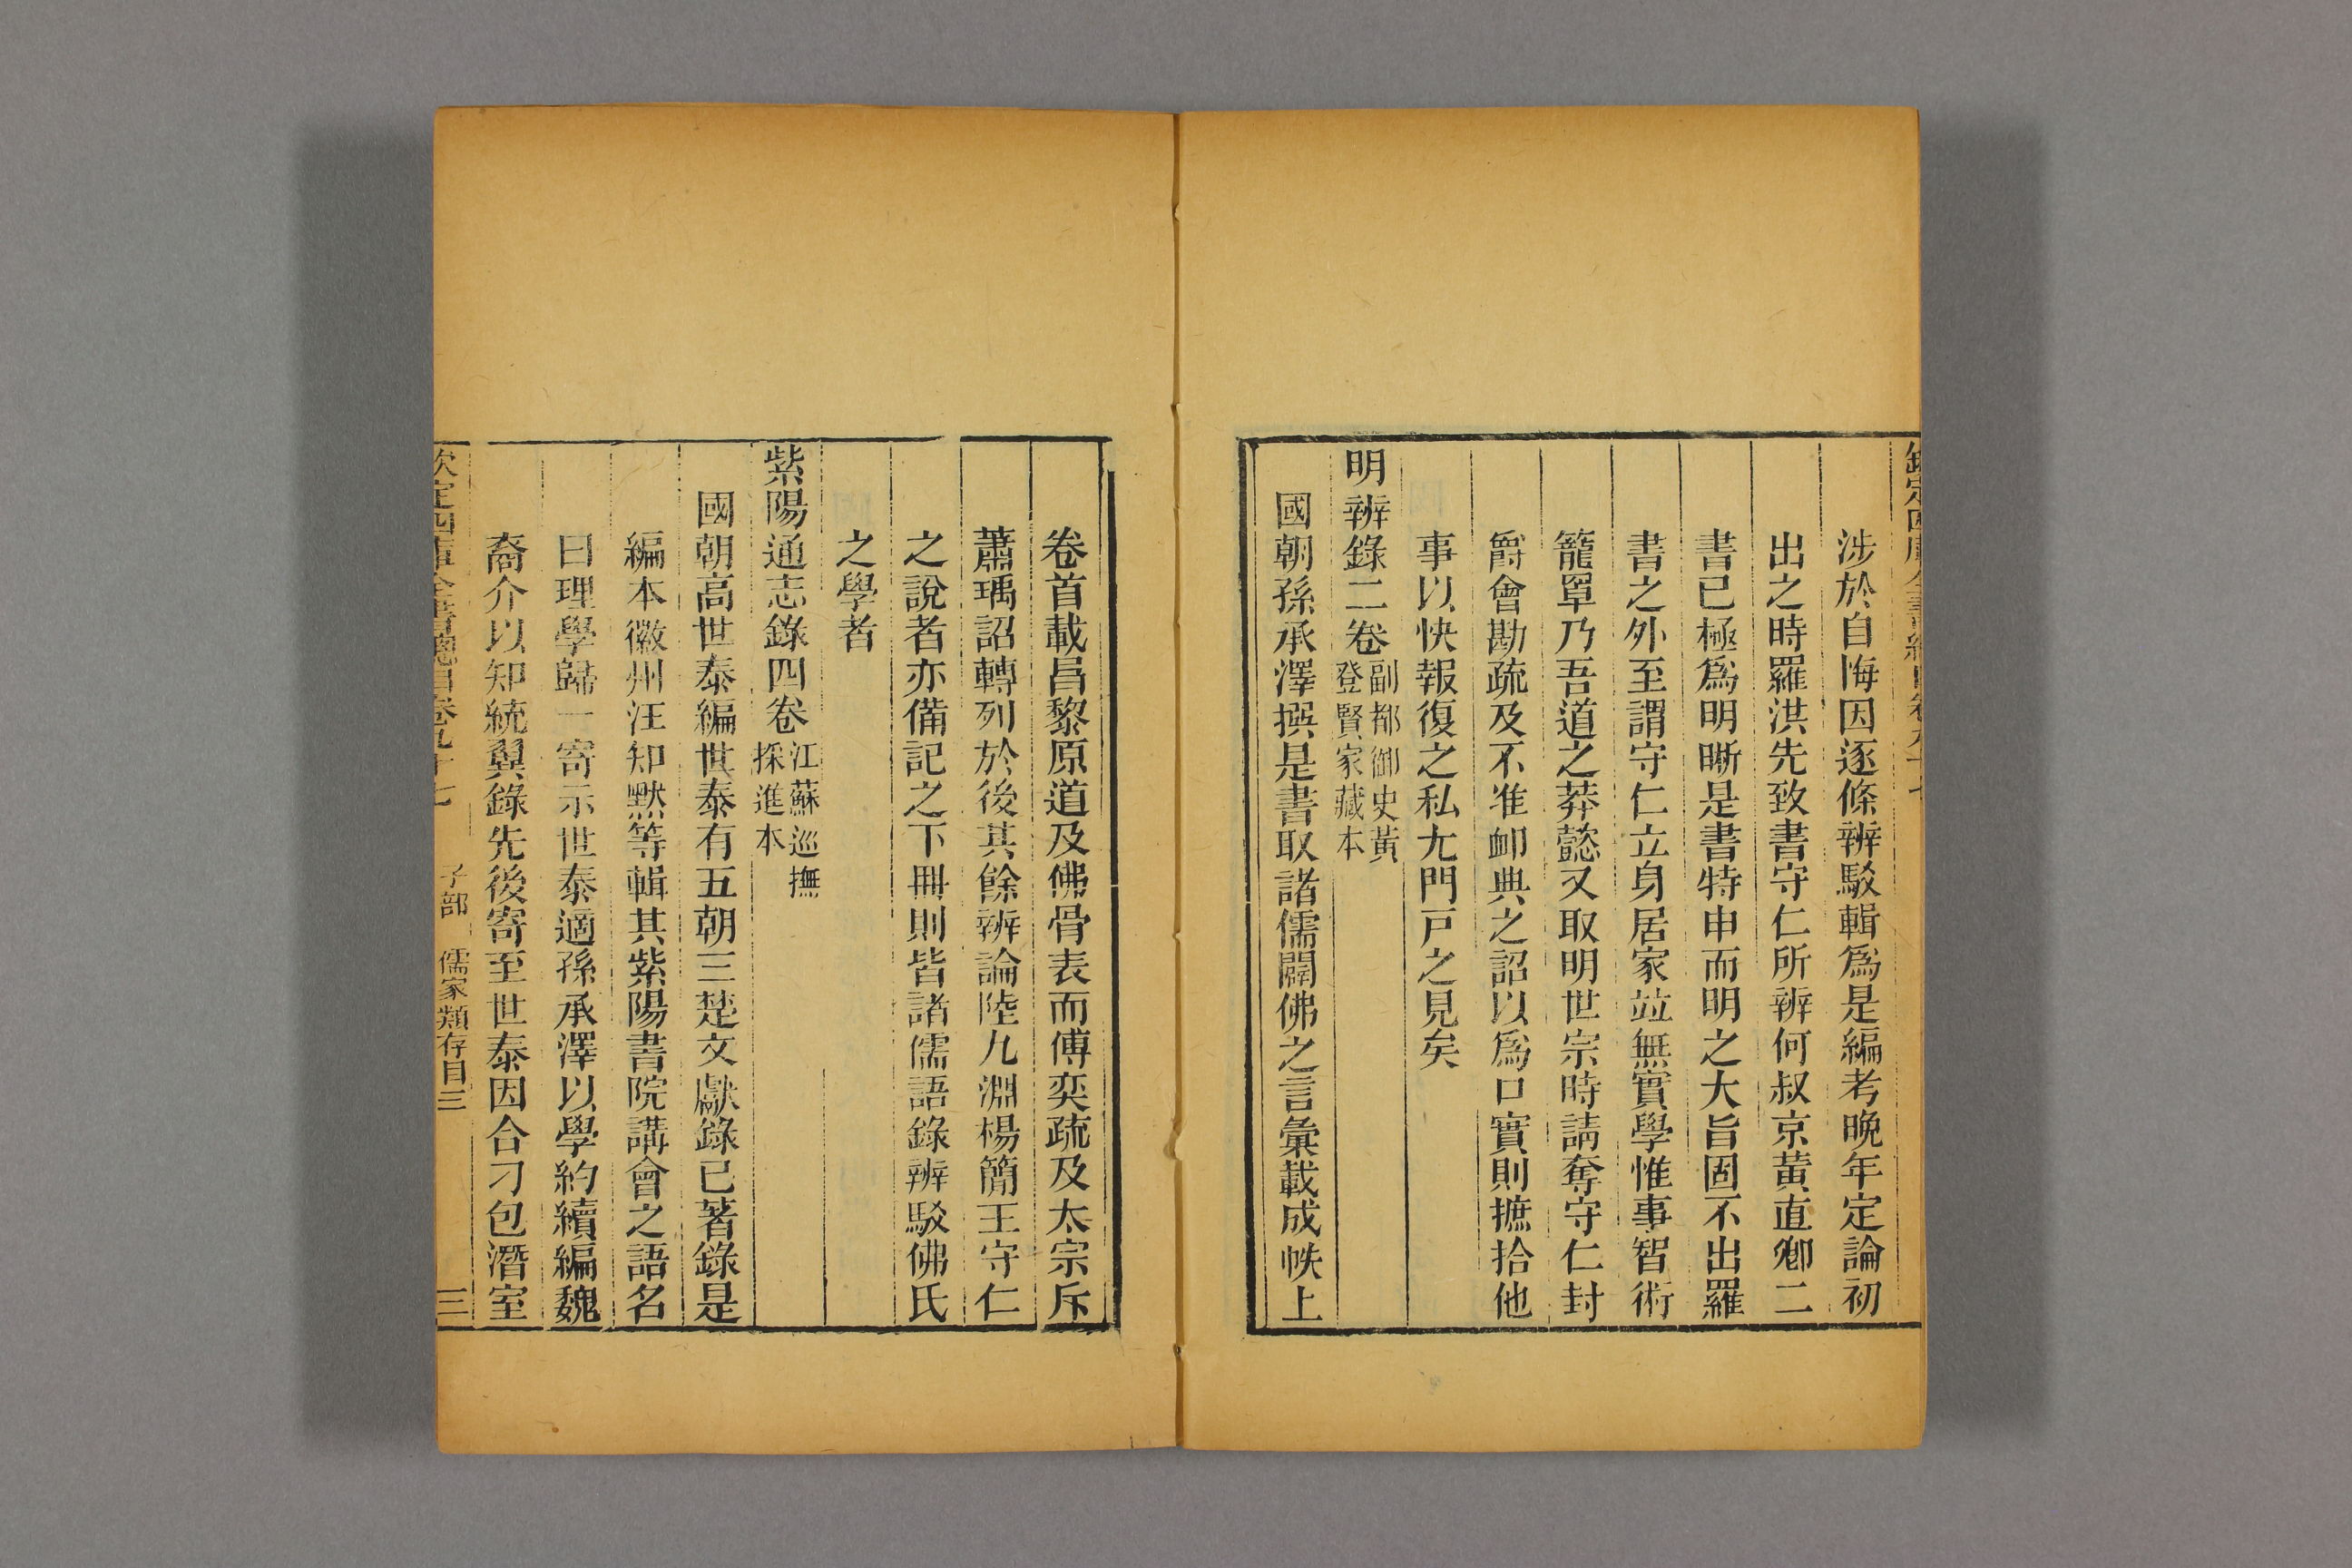 涉於自悔因逐條辨駁輯爲是編考晚年定論初
出之時羅洪先致書守仁所辨何叔京黄直卿二
書已極爲明晰是書特申而明之大旨固不出羅
書之外至謂守仁立身居家竝無實學惟事智術
籠罩乃吾道之莽懿又取明世宗時請奪守仁封
爵會勘疏及不准䘏典之詔以爲口實則摭拾他
事以快報復之私尤門戸之見矣
明辨錄二卷
副都御史黃
登賢家藏本
國朝孫承澤撰是書取諸儒闢佛之言彙載成帙上
卷首載昌黎原道及佛骨表而傅奕疏及太宗斥
蕭瑀詔轉列於後其餘辨論陸九淵楊簡王守仁
之說者亦備記之下冊則皆諸儒語錄辨駁佛氏
之學者
紫陽通志錄四卷
江蘇巡撫
採進本
國朝高世泰編世泰有五朝三楚文獻錄已著錄是
編本徽州汪知默等輯其紫陽書院講會之語名
曰理學歸一寄示世泰適孫承澤以學約續編魏
裔介以知統翼錄先後寄至世泰因合刁包潛室
欽定四庫全書總目卷九十七
子部
儒家類存目三
三